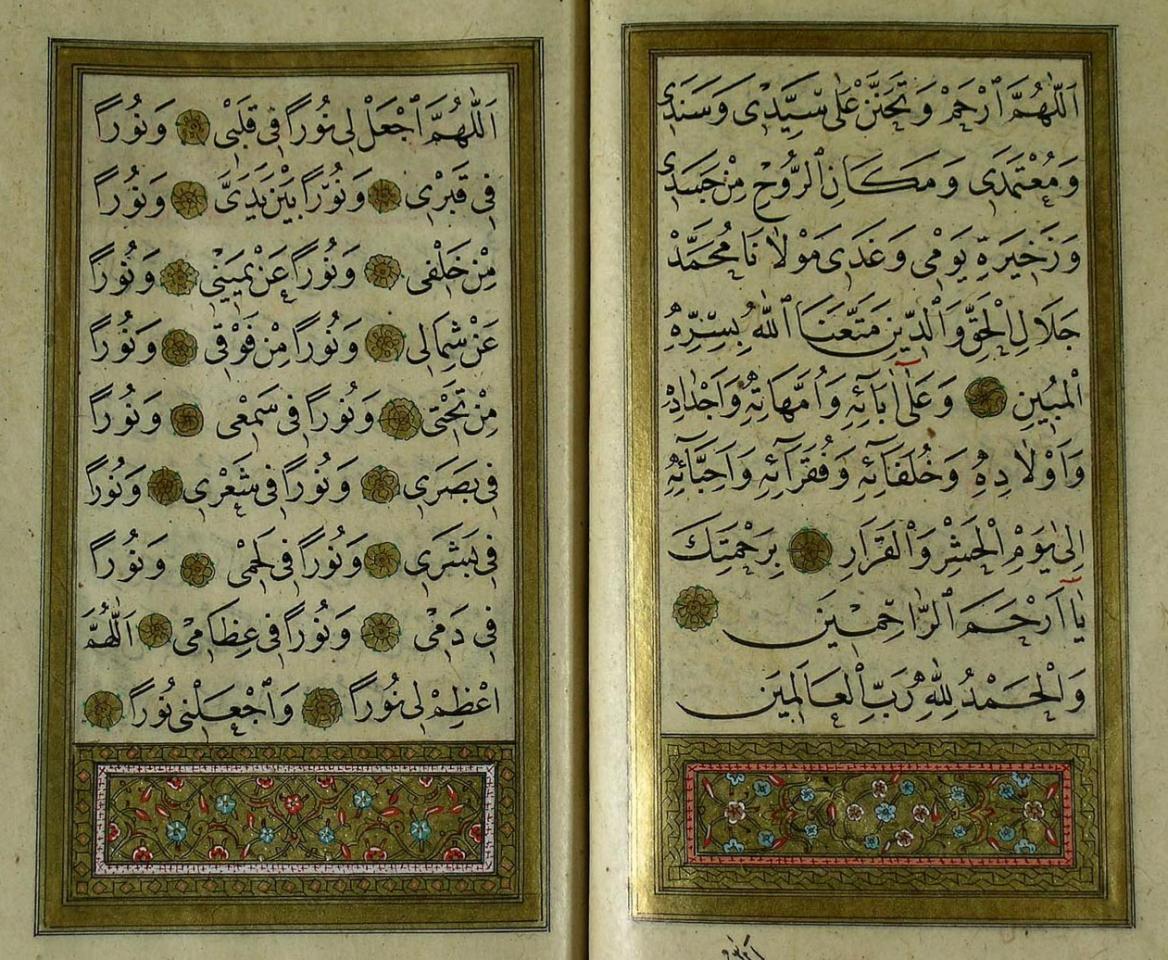 اَللّٰهُمَّ ٱرْحَمْ وَتَحَنَّنْ عَلٰى سَيِّدِى وَسَنَدِى
وَمُعْتَمَدِى وَمَكَانِ ٱلرُّوحِ مِنْ جَسَدِى
وَزَخِيرَةِ يَوْمِى وَغَدِى مَوْلَانَا مُحَمَّدْ
جَلَالِ الْحَقِّ وَٱلدِّينِ مَتَّعَنَا ٱللّٰهُ بِسِرِّهِ
الْمُبِينِ وَعَلٰى اٰبَآئِهِ وَاُمَّهَاتِهِ وَاَجْدَادِهِ
وَاَوْلَادِهِ وَخُلَفَآئِهِ وَفُقَرَآئِهِ وَاَحِبَّآئِهِ
اِلٰى يَوْمِ الْحَشْرِ وَالْقَرَارِ بِرَحْمَتِكَ
يَآ اَرْحَمَ ٱلرَّاحِمِينَ
وَالْحَمْدُ لِلّٰهِ رَبِّ الْعَالَمِينَ
اَللّٰهُمَّ ٱجْعَلْ لِى نُورًا فِى قَلْبِى وَنُورًا
فِى قَبْرِى وَنُورًا بَيْنَ يَدَىَّ وَنُورًا
مِنْ خَلْفِى وَنُورًا عَنْ يَمِينِى وَنُورًا
عَنْ شِمَالِى وَنُورًا مِنْ فَوْقِى وَنُورًا
مِنْ تَحْتِى وَنُورًا فِى سَمْعِى وَنُورًا
فِى بَصَرِى وَنُورًا فِى شَعْرِى وَنُورًا
فِى بَشَرِى وَنُورًا فِى لَحْمِى وَنُورًا
فِى دَمِى وَنُورًا فِى عِظَامِى اَللّٰهُمَّ
اعْظِمْ لِى نُورًا وَٱجْعَلْنِى نُورًا